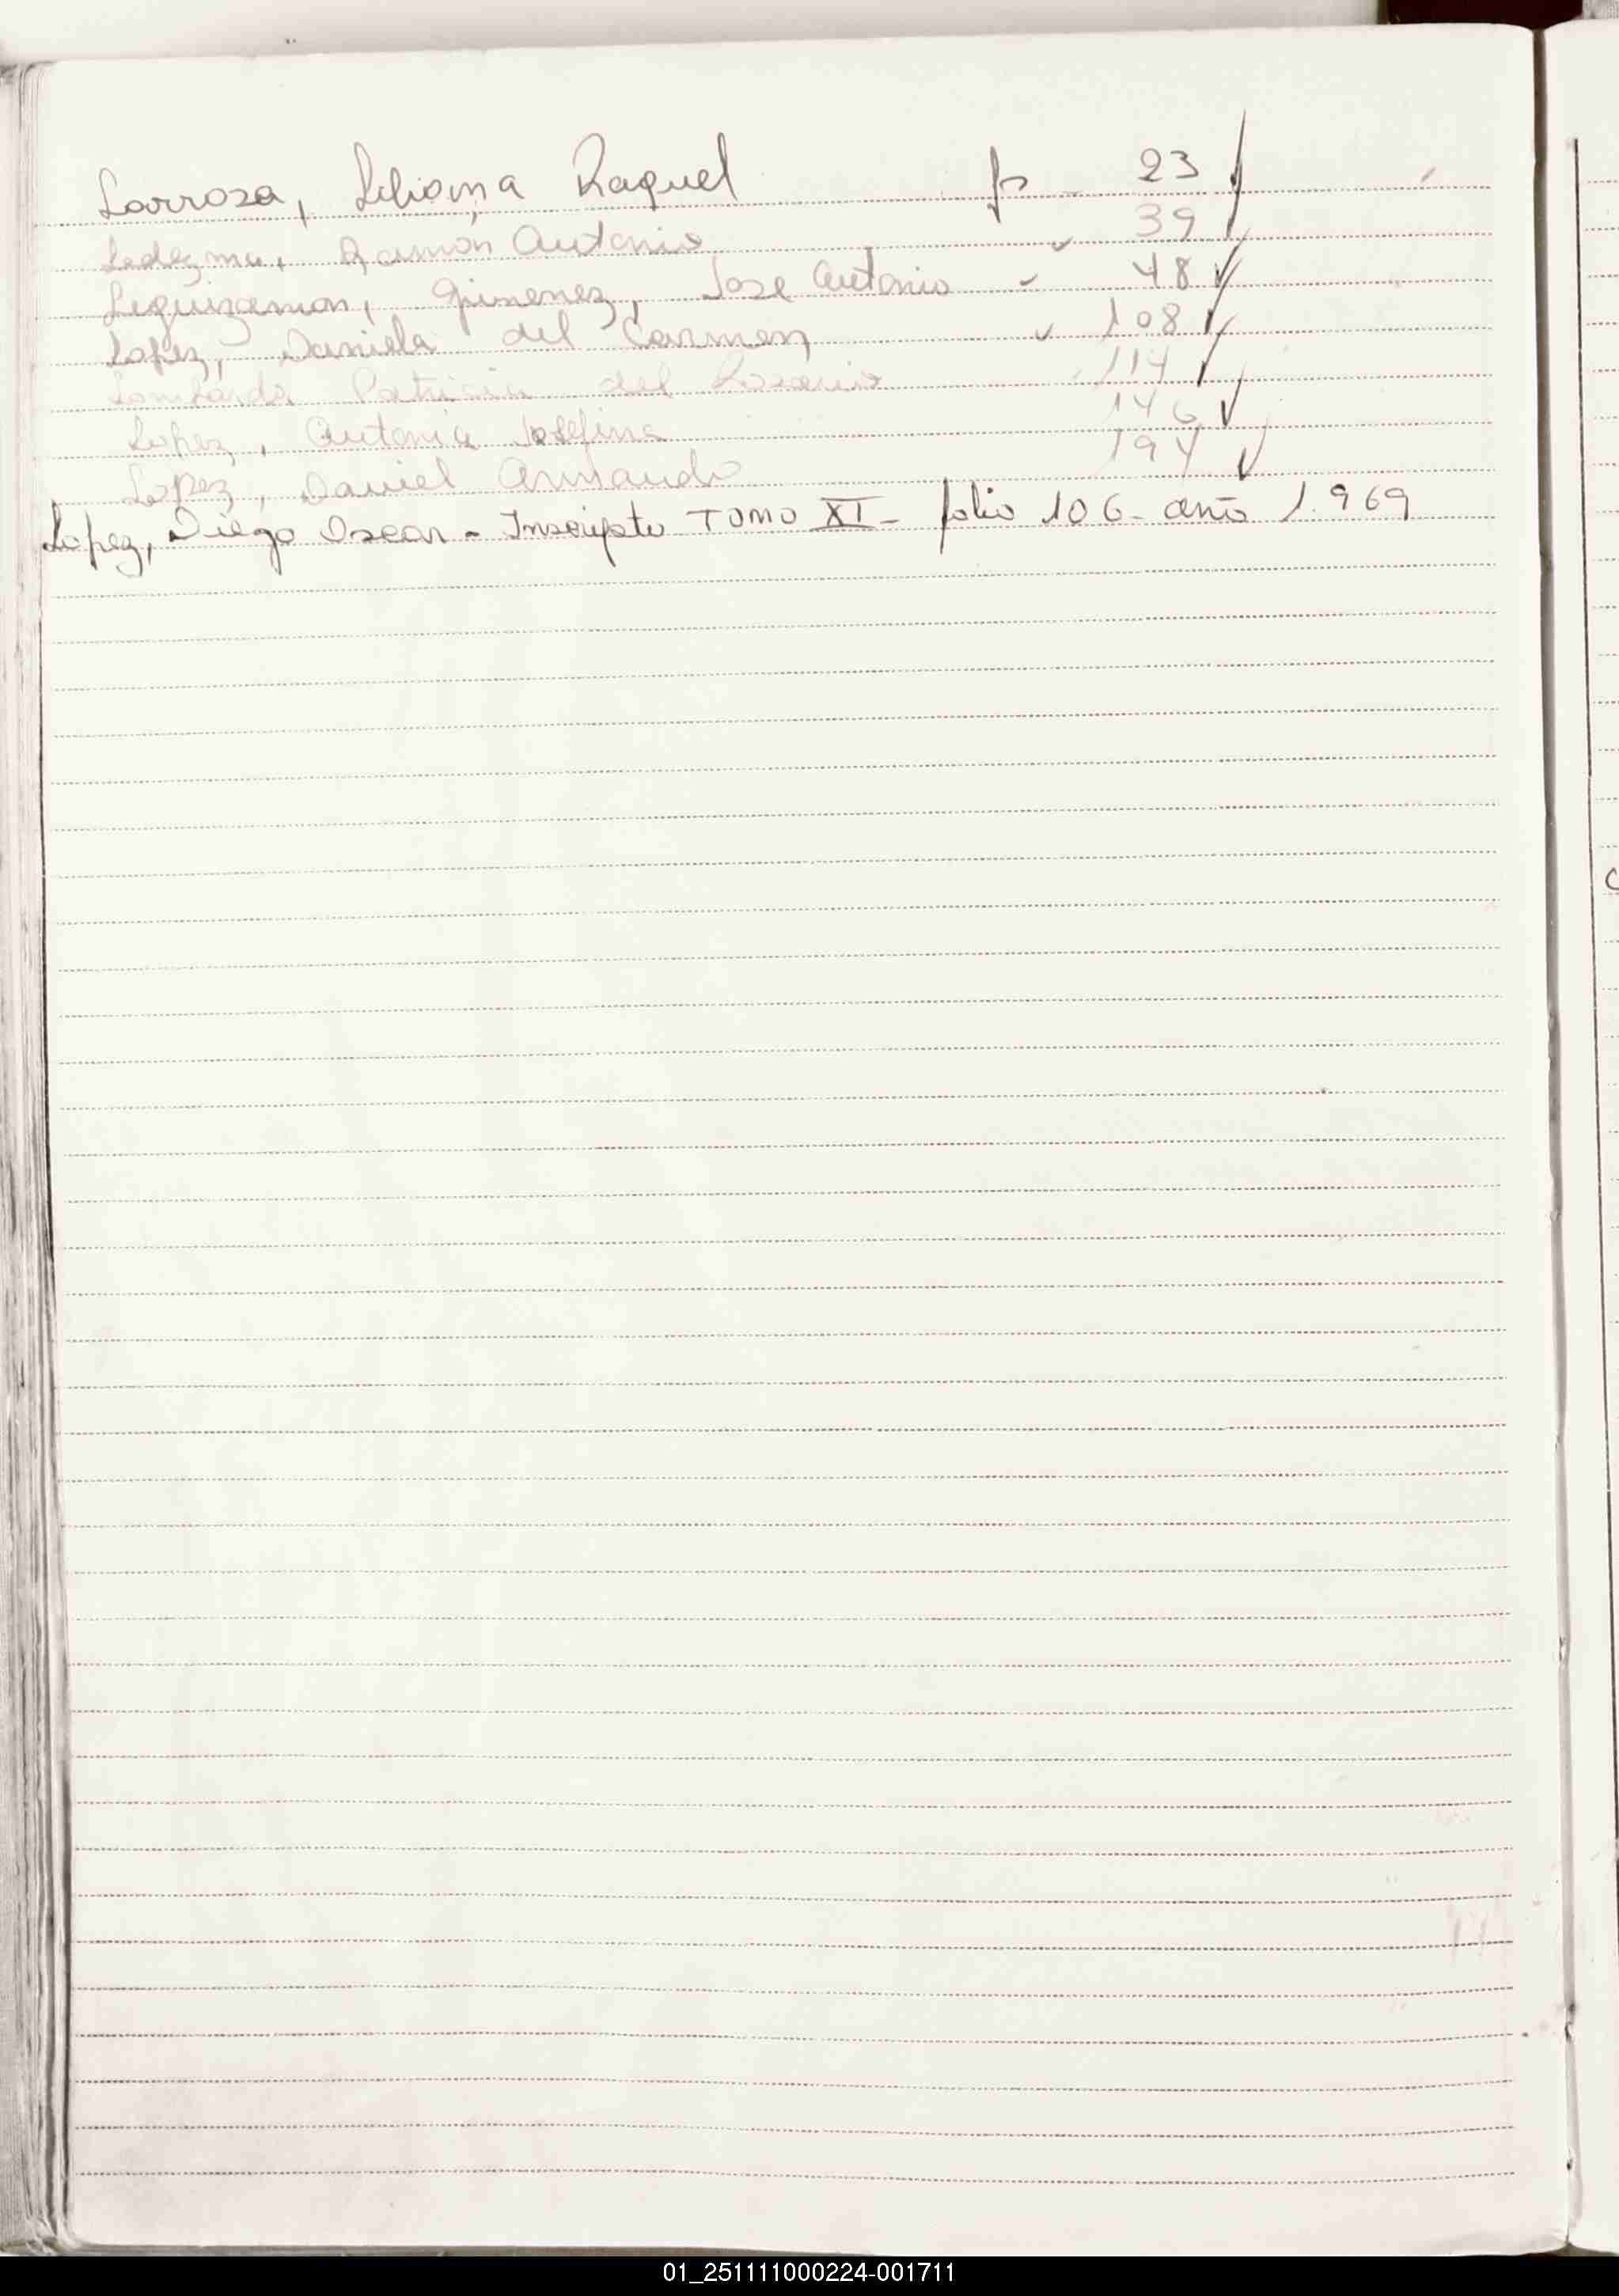 Larroza, Liliana Raquel fs - 23 ✓
Ledezma, Ramon Antonio " 39 ✓
Leguizamon, Gimenez, Jose Antonio " 48 ✓
Lopez, Daniela del Carmen " 108 ✓
Lombardo Patricia del Rosario " 114 ✓
Lopez, Antonia Josefina 146 ✓
Lopez, Daniel Armando 194 ✓
Lopez, Diego Oscar - Inscripto TOMO XI - folio 106 - año 1.969
01_251111000224-001711